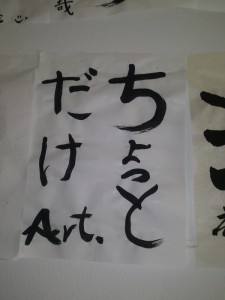 ちょっと
だけ
Art.